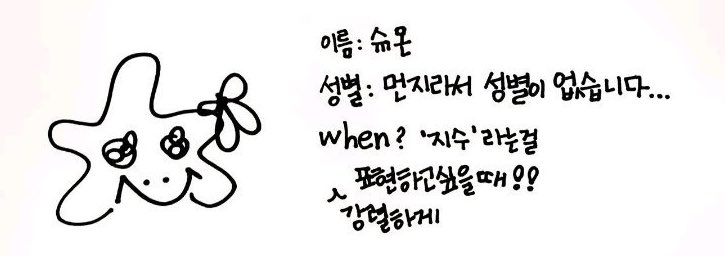 이름: 슈몬
성별: 먼지라서 성별이 없습니다...
when? '지수'라는걸
표현하고싶을때!!
^강렬하게